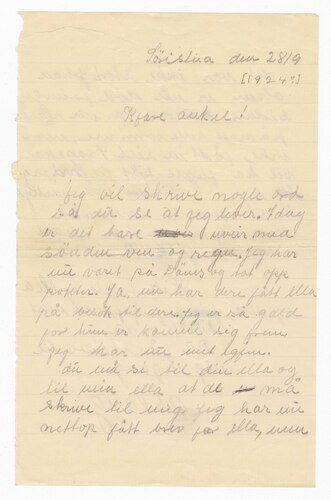 den 28/9
[1924?]
Kjære onkel!
jeg vil skrive nogle ord
så du se at jeg lever. Idag
er det bare uveir med
sønden ven og regn. Jeg har
nu varet på og tat opp
poteter. Ja, nu har dere fått ella
på besøk til dere. jeg er så gald
for hun er komme sig frem
jeg har nu mit igjen.
du må si til din ella og
til min ella at de må
skrive til meg. jeg har nu
nettop fått brev for ella, men